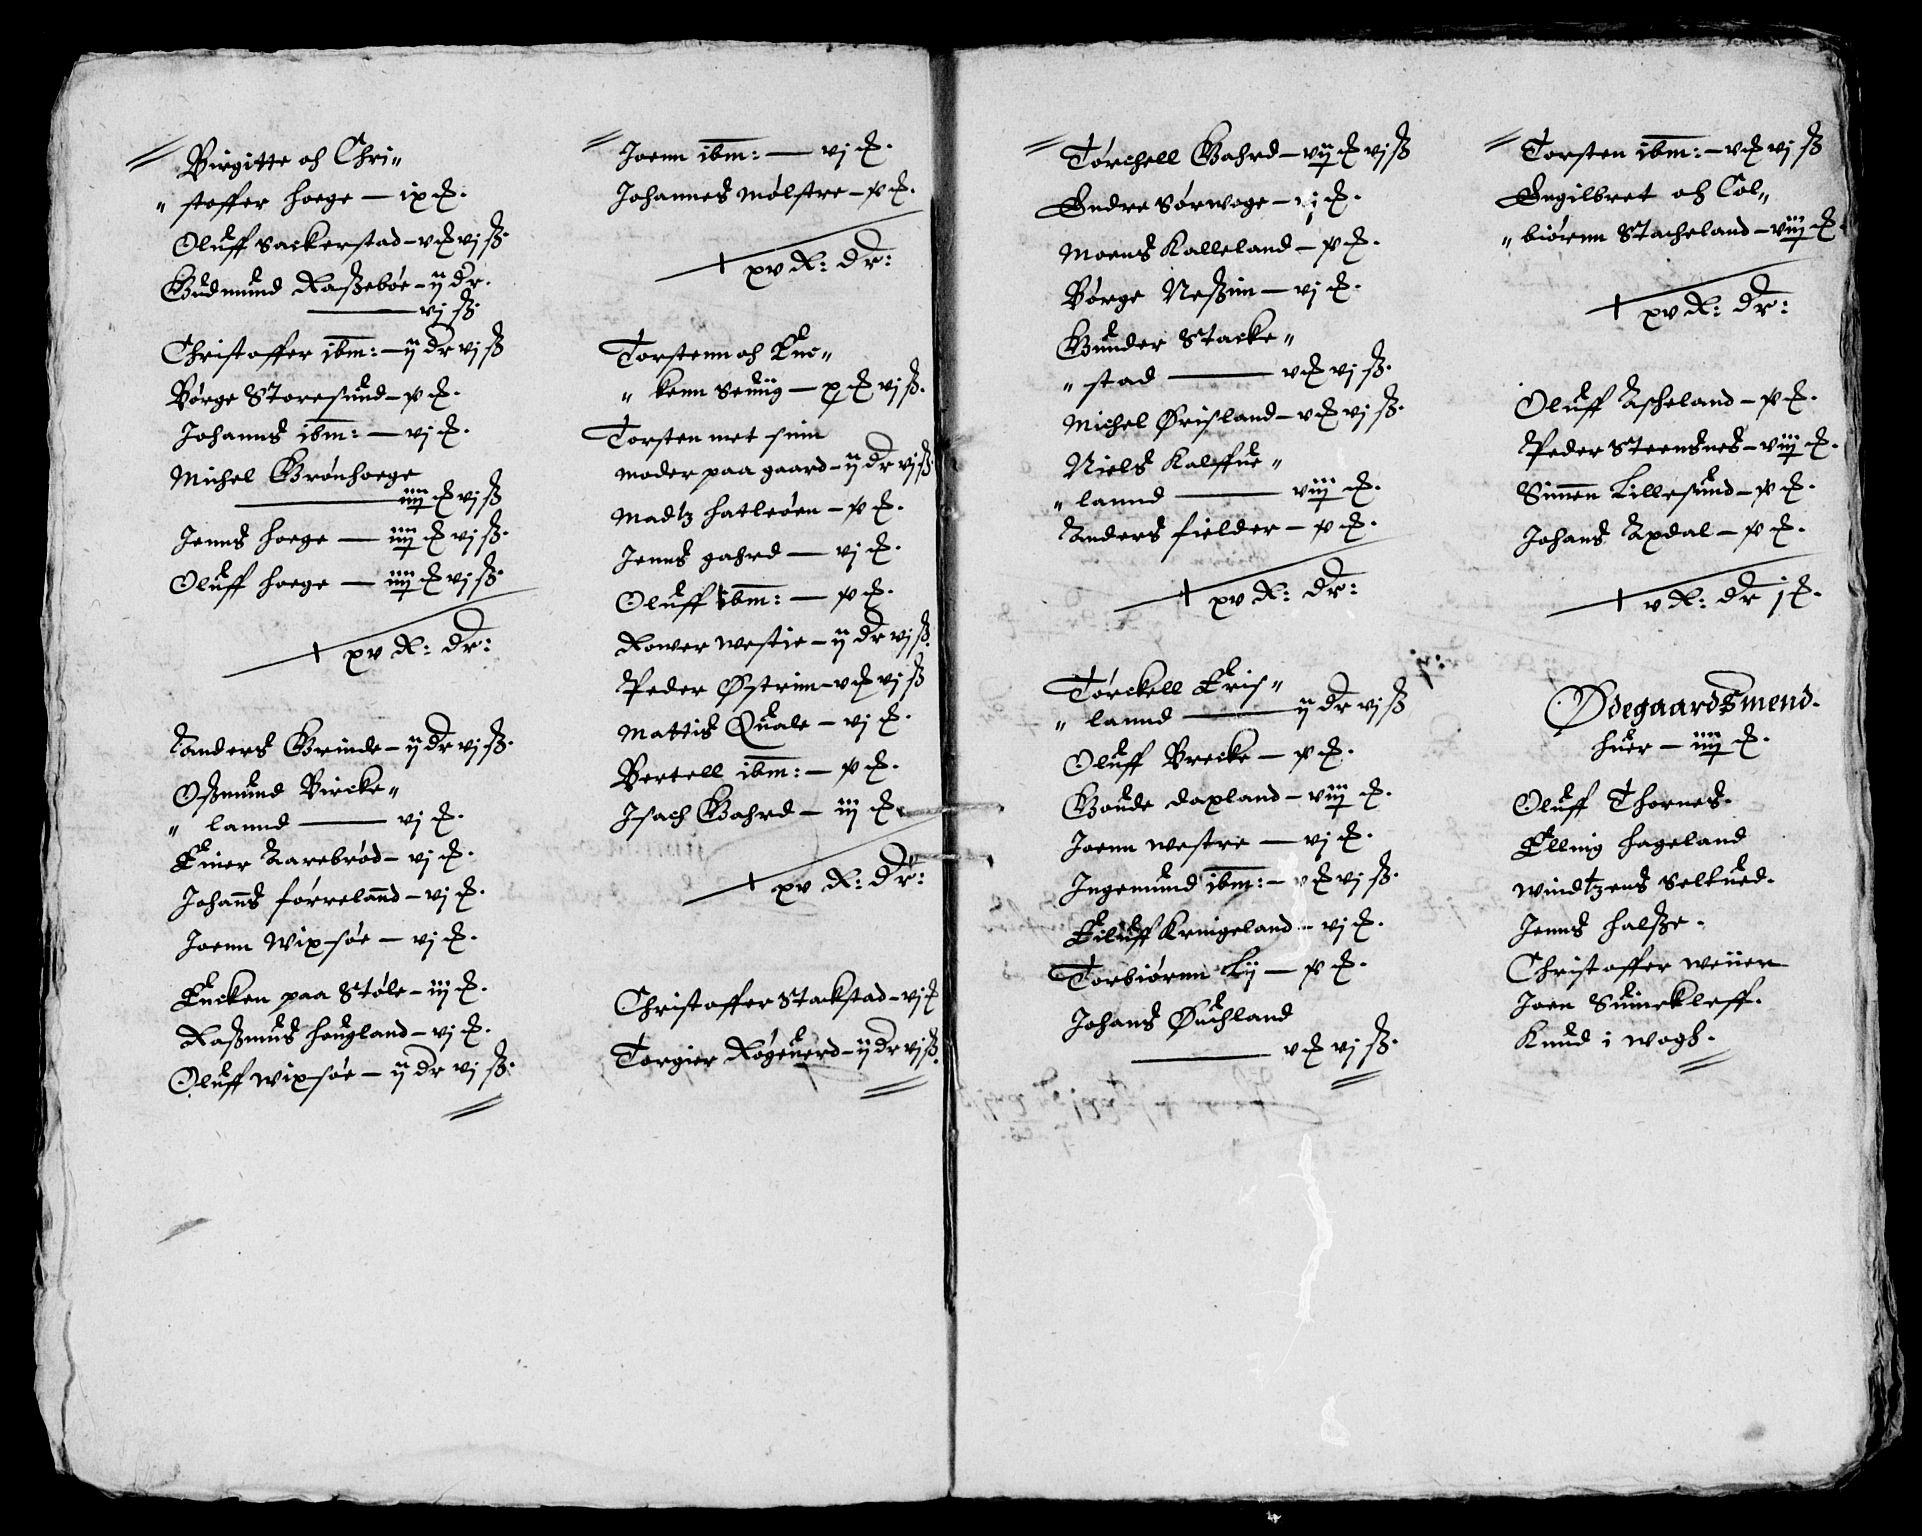 Birgitte och Chri„
„ stoffer hoege — ix ₰.
Oluff Sackerstad — v ₰ vj ß.
Gudmund Raßebøe — ij dr.
— vj ß.
Christoffer ibm: — ij dr vj ß
Børge Storesund — p ₰.
Johanns ibm: — vj ₰.
Michel Grønhoege
— iiij ₰ vj ß
Jenns hoege — iiij ₰ vj ß.
Oluff hoege — iiij ₰ vj ß.
xv R: dr:
Anders Grinde — ij dr vj ß.
Oßmund Bircke„
„ lannd — vj ₰.
Einer Aarebrød — vj ₰.
Johans førreland — vj ₰.
Joenn Wixsøe — vj ₰.
Encken paa Støle — iij ₰.
Raßmus hougland — vj ₰.
Oluff Wixsøe — ij dr vj ß.
Joenn ibm: — vj ₰.
Johannes Mølstre — p ₰.
xv R: dr:
Torstenn och Enc„
„ kenn — x ₰ vj ß.
Torsten met sinn
moder paa gaard — ij dr vj ß
Madtz hatleøen — p ₰.
Jenns gahrd — vj ₰.
Oluff ibm: — p ₰.
Rower westre — ij dr vj ß.
Peder Østrim — v ₰ vj ß
Mattis Quale — vj ₰.
Bertell ibm: — p ₰.
Isach Gahrd — iij ₰.
xv R: dr:
Christoffer Stackstad — vj ₰
Torgier Røgeuerd — ij dr vj ß.
Tørchell Gahrd — vij ₰ vj ß
Endre Sørwoge — vj ₰.
Moens Kalleland — p ₰.
Børge Neßim — vj ₰.
Gunder Stacke„
„ stad — v ₰ vj ß.
Michel Ørisland — v ₰ vj ß.
Niels Kalffue„
„ lannd — viij ₰.
Anders fielder — p ₰.
xv R: dr:
Tørckell Eris„
„ lannd — ij dr vj ß
Oluff Brecke — p ₰.
Goude daxland — viij ₰.
Joenn westre — vj ₰.
Ingemund ibm: — v ₰ vj ß.
Eiluff Kringeland — vj ₰.
Torbiørnn Lij — p ₰.
Johans Øuchland
— v ₰ vj ß.
Torsten ibm: — v ₰ vj ß
Engilbret och Col„
„ biørnn Stacheland — viij ₰.
xv R: dr:
Oluff Ascheland — p ₰.
Peder Steensnes — viij ₰.
Simen Lillesund — p ₰.
Johans Axdal — p ₰.
v R: dr j ₰.
Ødegaardsmend.
huer — iiij ₰.
Oluff Thornes.
Elling hageland
Windtzens Selkued.
Jenns halsze.
Christoffer
Joen Suinekleff.
Knud i wogh.